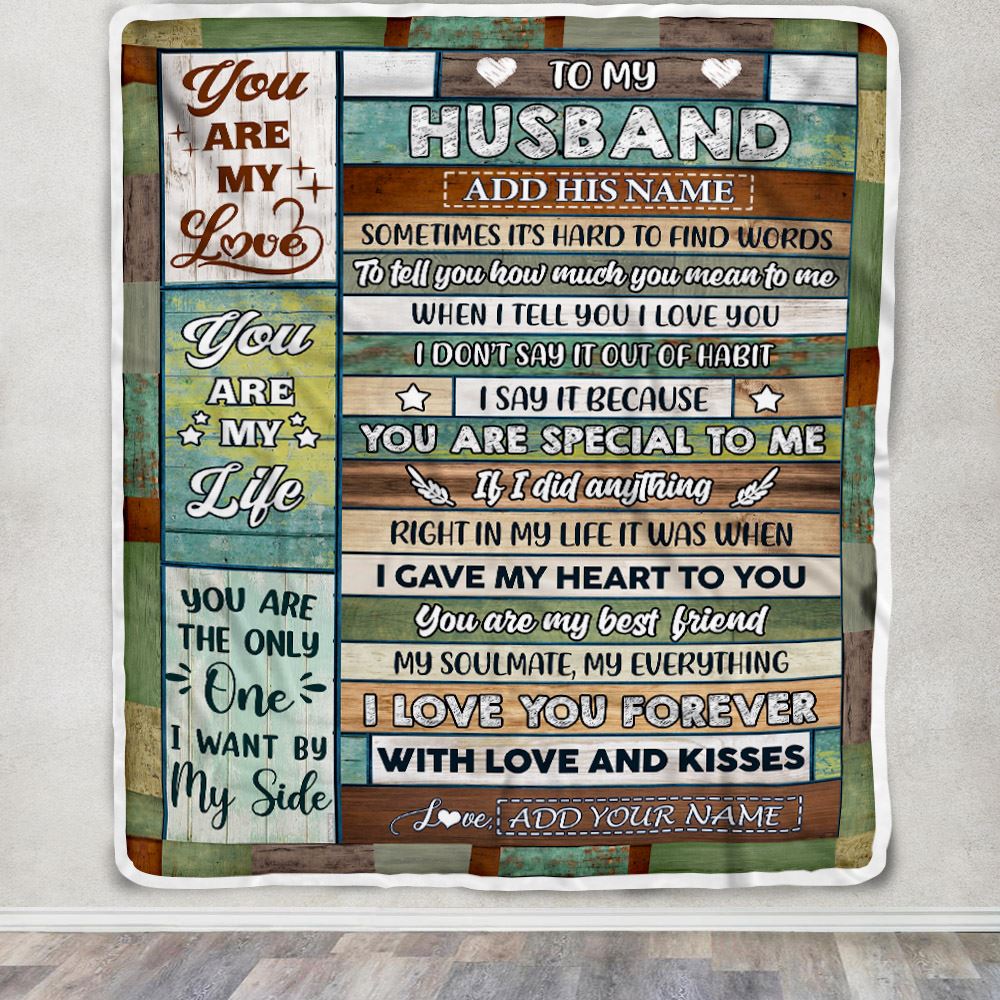 You
ARE
MY
Love
You
ARE
MY
Life
YOU ARE
THE ONLY
One
I WANT BY
My Side
TO MY
HUSBAND
ADD HIS NAME
SOMETIMES IT'S HARD TO FIND WORDS
To tell you how much you mean to me
WHEN I TELL YOU I LOVE YOU
I DON'T SAY IT OUT OF HABIT
I SAY IT BECAUSE
YOU ARE SPECIAL TO ME
If I did anything
RIGHT IN MY LIFE IT WAS WHEN
I GAVE MY HEART TO YOU
You are my best friend
MY SOULMATE, MY EVERYTHING
I LOVE YOU FOREVER
WITH LOVE AND KISSES
Love, ADD YOUR NAME